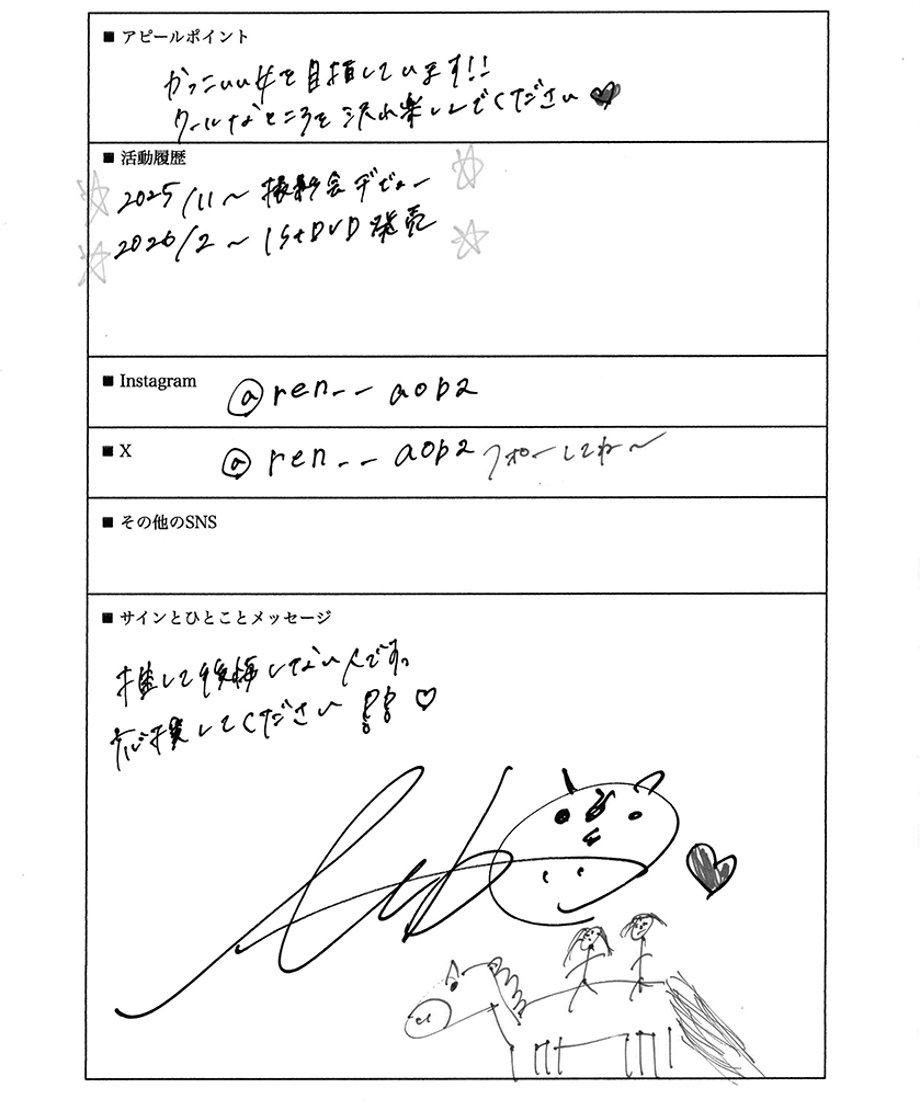 ■ アピールポイント
かっこいい女を目指しています!!
クールなところを沢山楽しんでください♥
■ 活動履歴
2025/11〜 撮影会デビュー
2026/2〜 1stDVD発売
■ Instagram
@ren__aop2
■ X
@ren__aop2 フォローしてね〜
■ その他のSNS
■ サインとひとことメッセージ
推して後悔しない人です。
応援してください!!♡